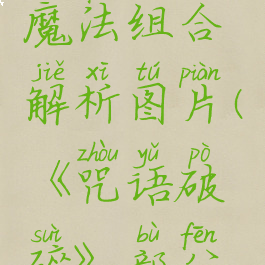 魔法组合
jiě xī tú piàn
解析图片(
zhòu yǔ pò
《咒语破
suì bù fēn
碎》部分